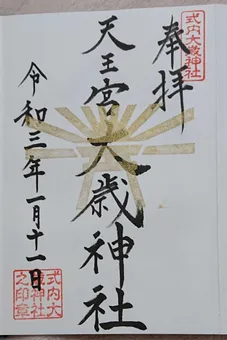 式内大歳神社
奉拝
天王宮大歳神社
令和三年一月十一日
式内大
歳神社
之印章